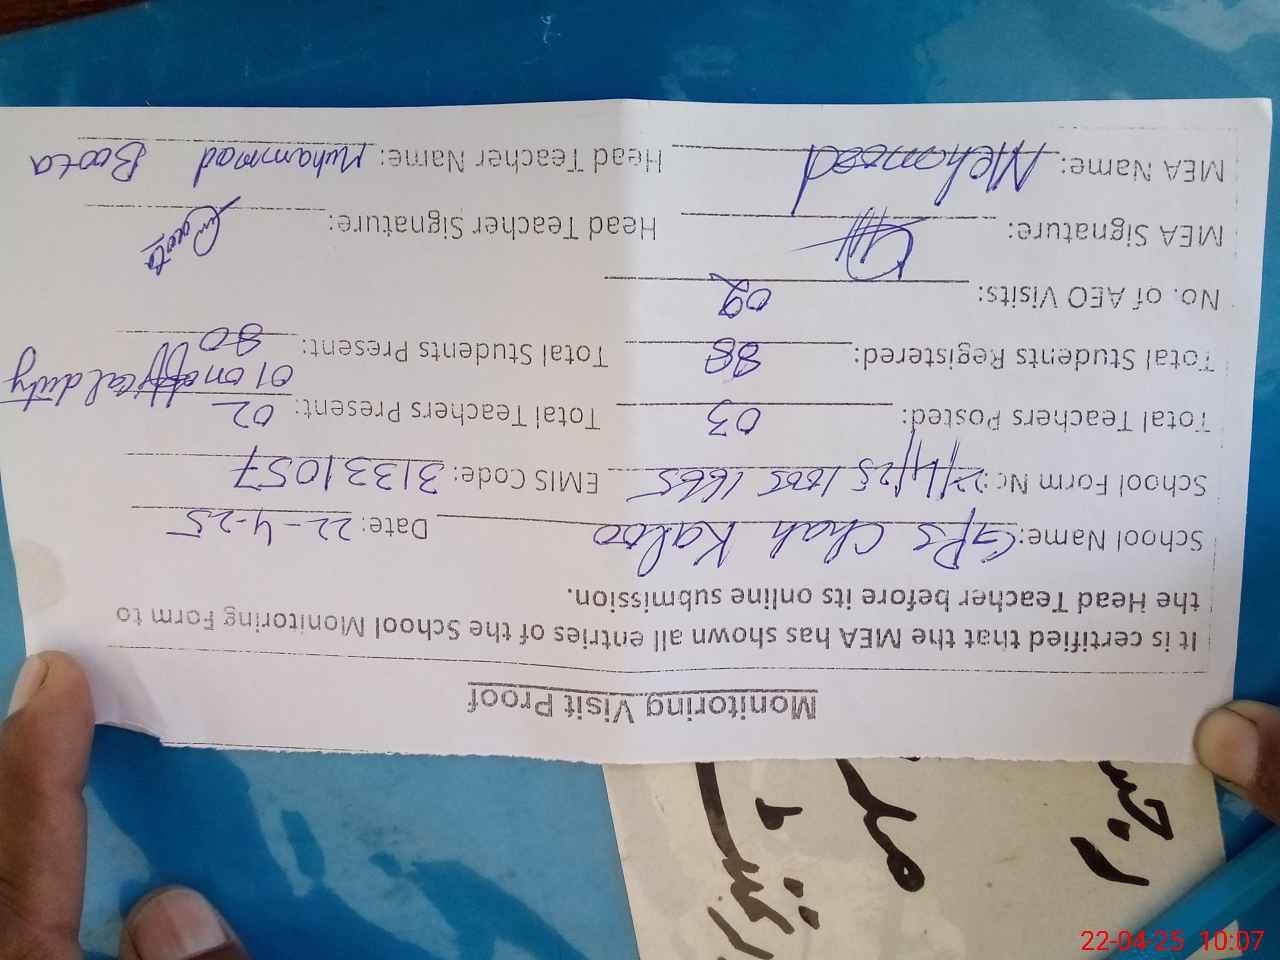 Monitoring Visit Proof
It is certified that the MEA has shown all entries of the School Monitoring Form to
the Head Teacher before its online submission.
School Name: GPS Chah Kaloo Date: 22-4-25
School Form No: 22/4/25 1005 1665 EMIS Code: 31331057
Total Teachers Posted: 03 Total Teachers Present: 02
01 on offical duty
Total Students Registered: 88 Total Students Present: 80
No. of AEO Visits: 02
MEA Signature: Head Teacher Signature: Boota
MEA Name: Mehmood Head Teacher Name: Muhammad Boota
22-04-25 10:07